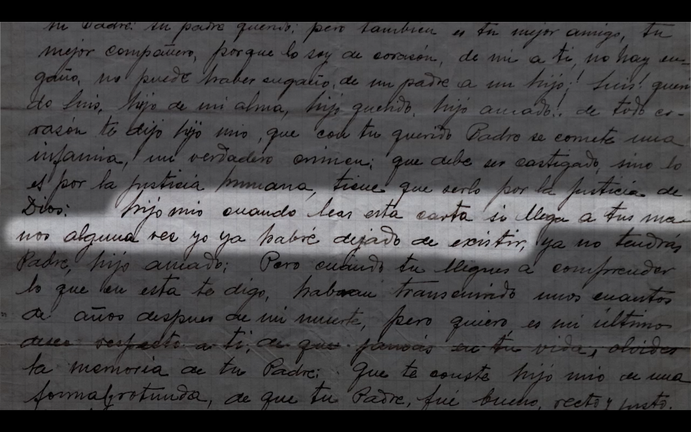 tu Padre: tu padre querido; pero tambien es tu mejor amigo, tu
mejor compañero, porque lo soy de corazón, de mi a ti, no hay en-
gaño, no puede haber engaño, de un padre a un hijo! Luis! queri-
do Luis, hijo de mi alma, hijo querido, hijo amado! de todo co-
razón te dijo hijo mio, que con tu querido Padre se comete una
infamia, un verdadero crimen; que debe ser castigado, sino lo
es por la justicia humana, tiene que serlo por la justicia de
Dios: hijo mio cuando leas esta carta si llega a tus ma-
nos alguna vez yo ya habré dejado de existir, ya no tendrás
Padre, hijo amado; Pero cuando tu llegues a comprender
lo que en esta te digo, habran transcurrido unos cuantos
de años despues de mi muerte, pero quiero, es mi último
deseo respecto a ti, de que jamás en tu vida, olvides
la memoria de tu Padre: que te conste hijo mio de una
forma rotunda, de que tu Padre, fué bueno, recto y justo.